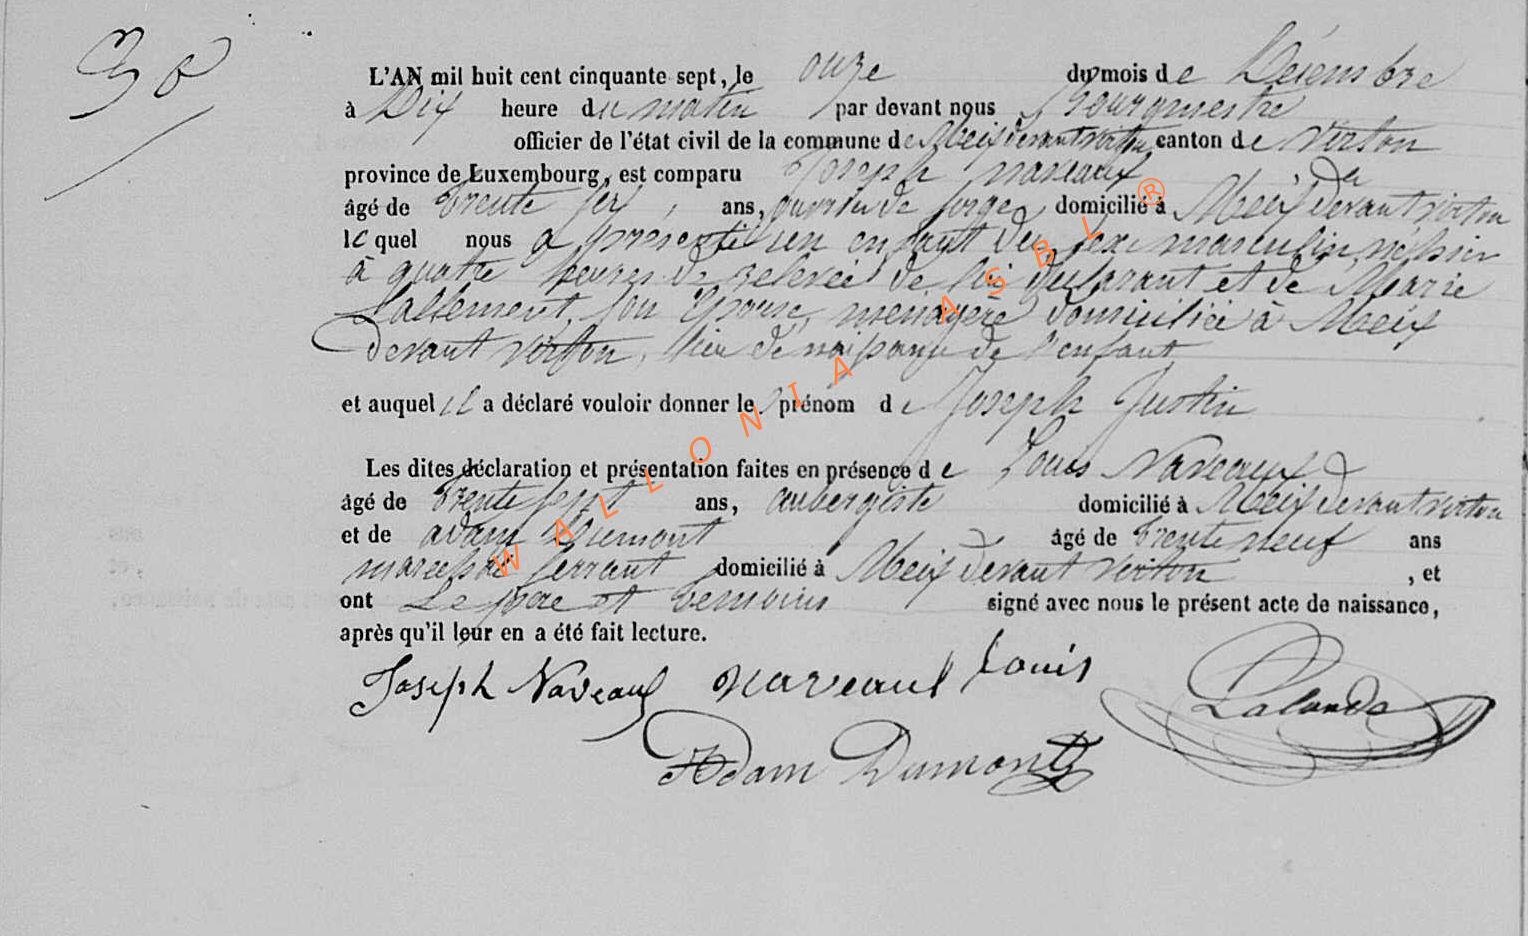 38
L'AN mil huit cent cinquante sept, le onze du mois de Décembre
à Dix heure du matin par devant nous Bourgmestre
officier de l'état civil de la commune de Meix devant virton canton de virton
province de Luxembourg, est comparu Joseph naveaux
âgé de trente six, ans, ouvrier de forge domicilié à Meix devant virton
lequel nous a présenté un enfant du sexe masculin, né hier
à quatre heures de relevée de lui déclarant et de Marie
Lallement, son épouse, ménagère domiciliée à Meix
devant virton, lieu de naissance de l'enfant
et auquel il a déclaré vouloir donner le prénom de Joseph Justin
Les dites déclaration et présentation faites en présence de Louis Naveaux
âgé de trente sept ans, aubergiste domicilié à Meix devant virton
et de adam Dumont âgé de trente neuf ans
maréchal ferrant domicilié à Meix devant virton, et
ont Le père et témoins signé avec nous le présent acte de naissance,
après qu'il leur en a été fait lecture.
Joseph Naveaux naveaux Louis Lalande
Adam Dumont
WALLONIA ASBL ®